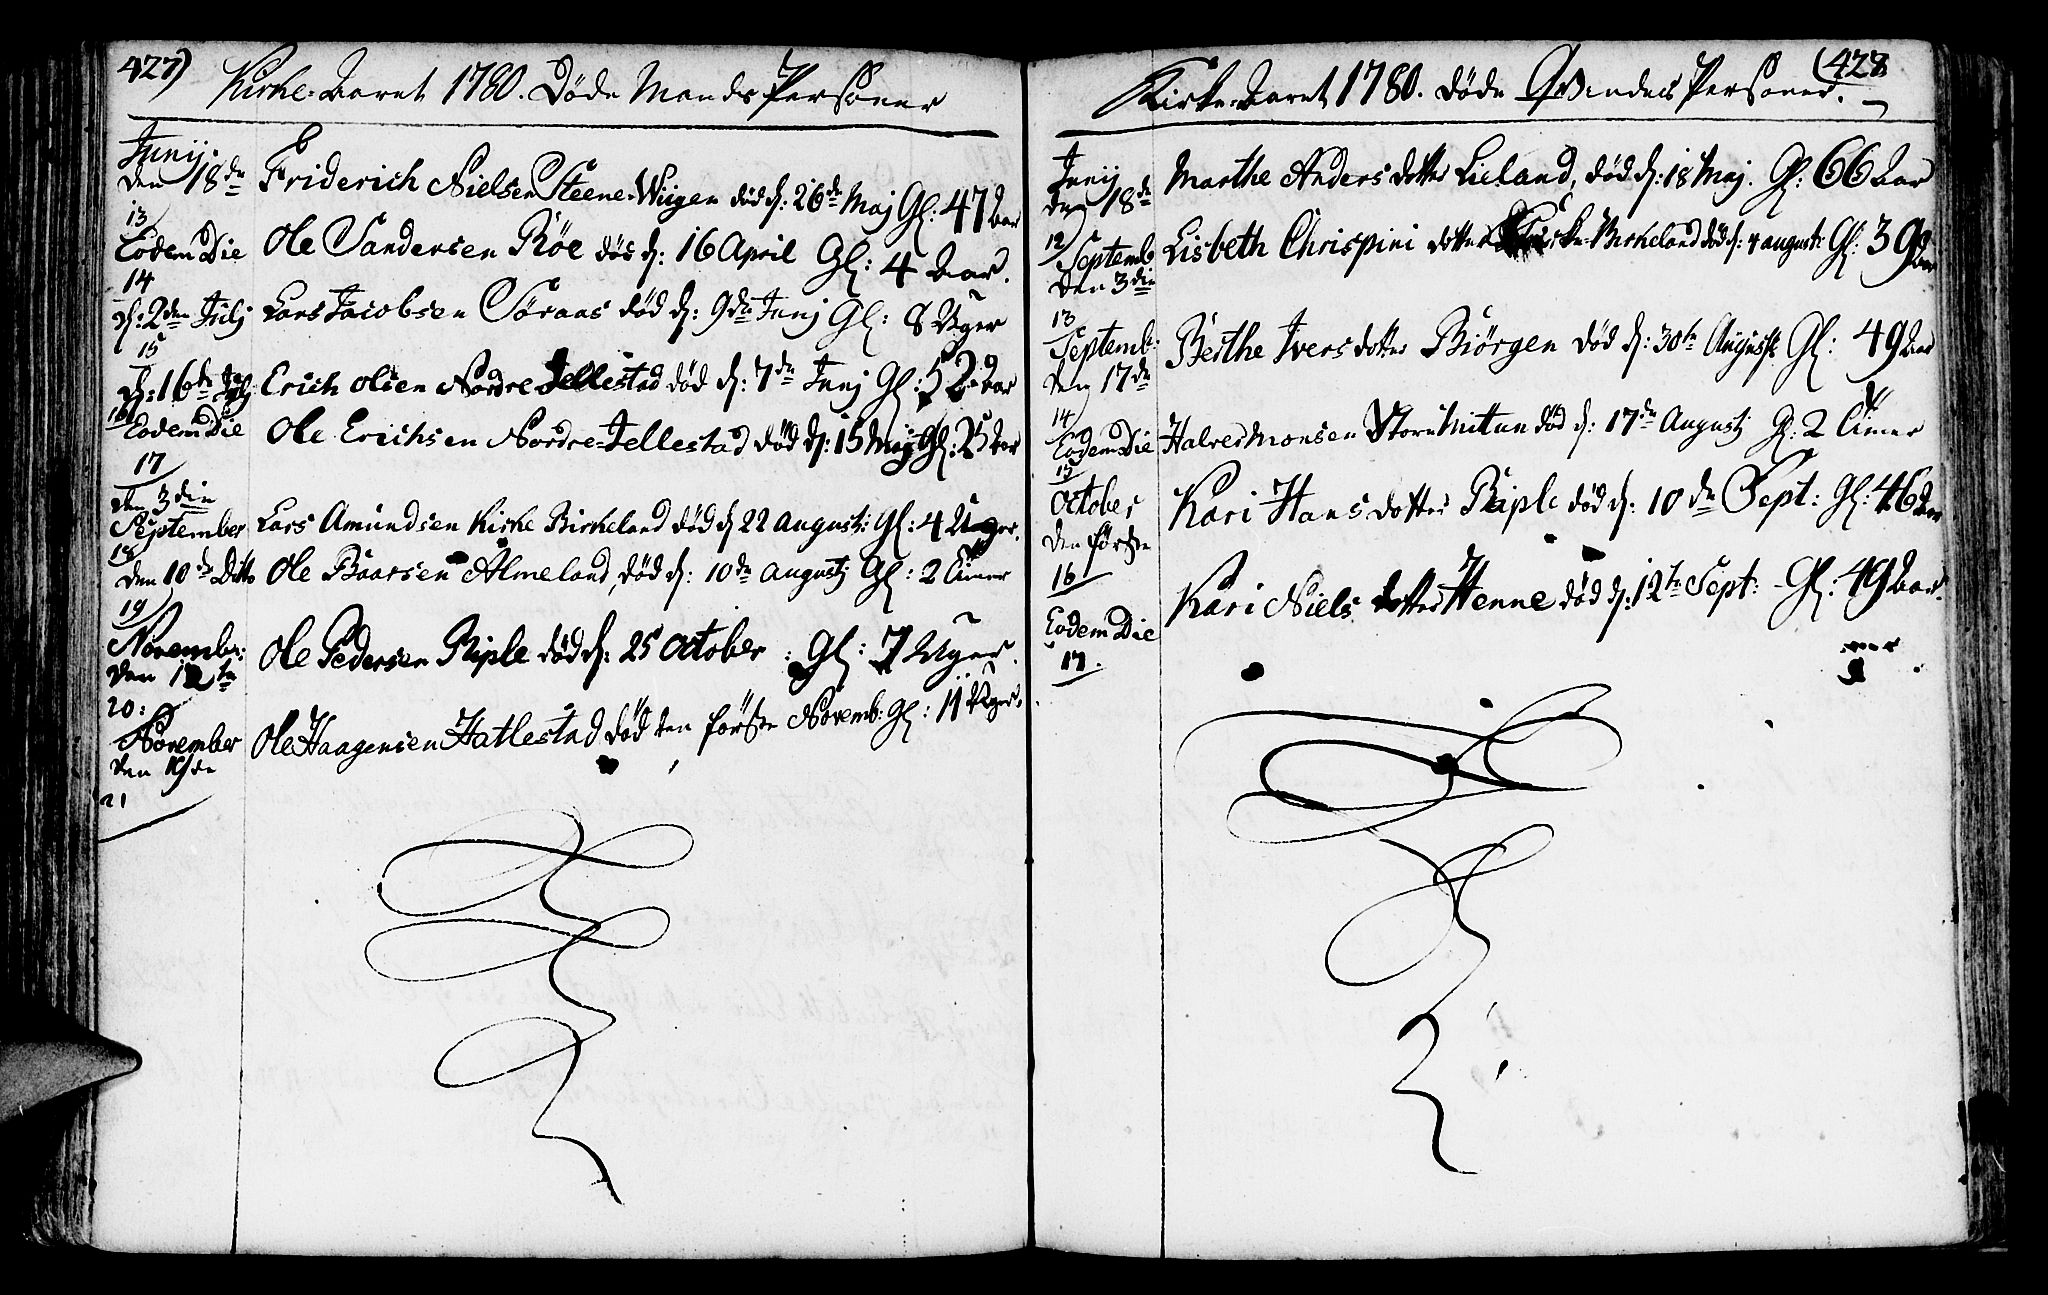 427)
Kirke-Aaret 1780. Døde Mands Personer
Junij.
den 18de Friderich Nielsen Steene-Wiigen død d: 26de Maj Gl: 47 Aar
13
Eodem Die Ole Sandersen Røe døs d: 16 April Gl: 4 Aar.
14
d: 2den Julj Lars Jacobsen Søraas død d: 9de Junj Gl: 8 Uger
15
d: 16de Julj Erich Olsen Nordre Jellestad død d: 7de Junj Gl: 52 Aar
16
Eodem Die Ole Erichsen Nordre-Jellestad død d: 15 Maij Gl: 25 Aar
17
den 3die
September Lars Amundsen Kirke Birkeland død d 22 Augusti Gl: 4 Uger.
18
den 10de Ditto Ole Baarsen Almeland, død d: 10de Augustj Gl: 2 Timer
19
Novembr:
den 12te Ole Pedersen Riple død d: 25 October : Gl: 7 Uger.
20:
November
den 19de Ole Haagensen Hatlestad død den første Novemb: Gl: 11 Uger.
21
(428
Kirke-Aaret 1780. Døde Qvindes Personer.
Junij
den 18de Marthe Anders dotter Lieland, død d: 18 Maj. Gl: 66 Aar
12
Septemb
den 3die Lisbeth Chrispini dotter Kirke-Birkeland død d: 4 augusti Gl: 39 Aar
13
Septemb:
den 17de Berthe Ivers dotter Biørgen død d: 30te Augusti Gl: 49 Aar
14
Eodem Die Halver Monsen Store Mittun død d: 17de Augustj Gl: 2 Timer
15
October
den første Kari Hans dotter Riple død d: 10de Sept: Gl: 46 Aar
16
Eodem Die Kari Niels dotter Henne død d: 12te Sept: Gl: 49 Aar.
17.